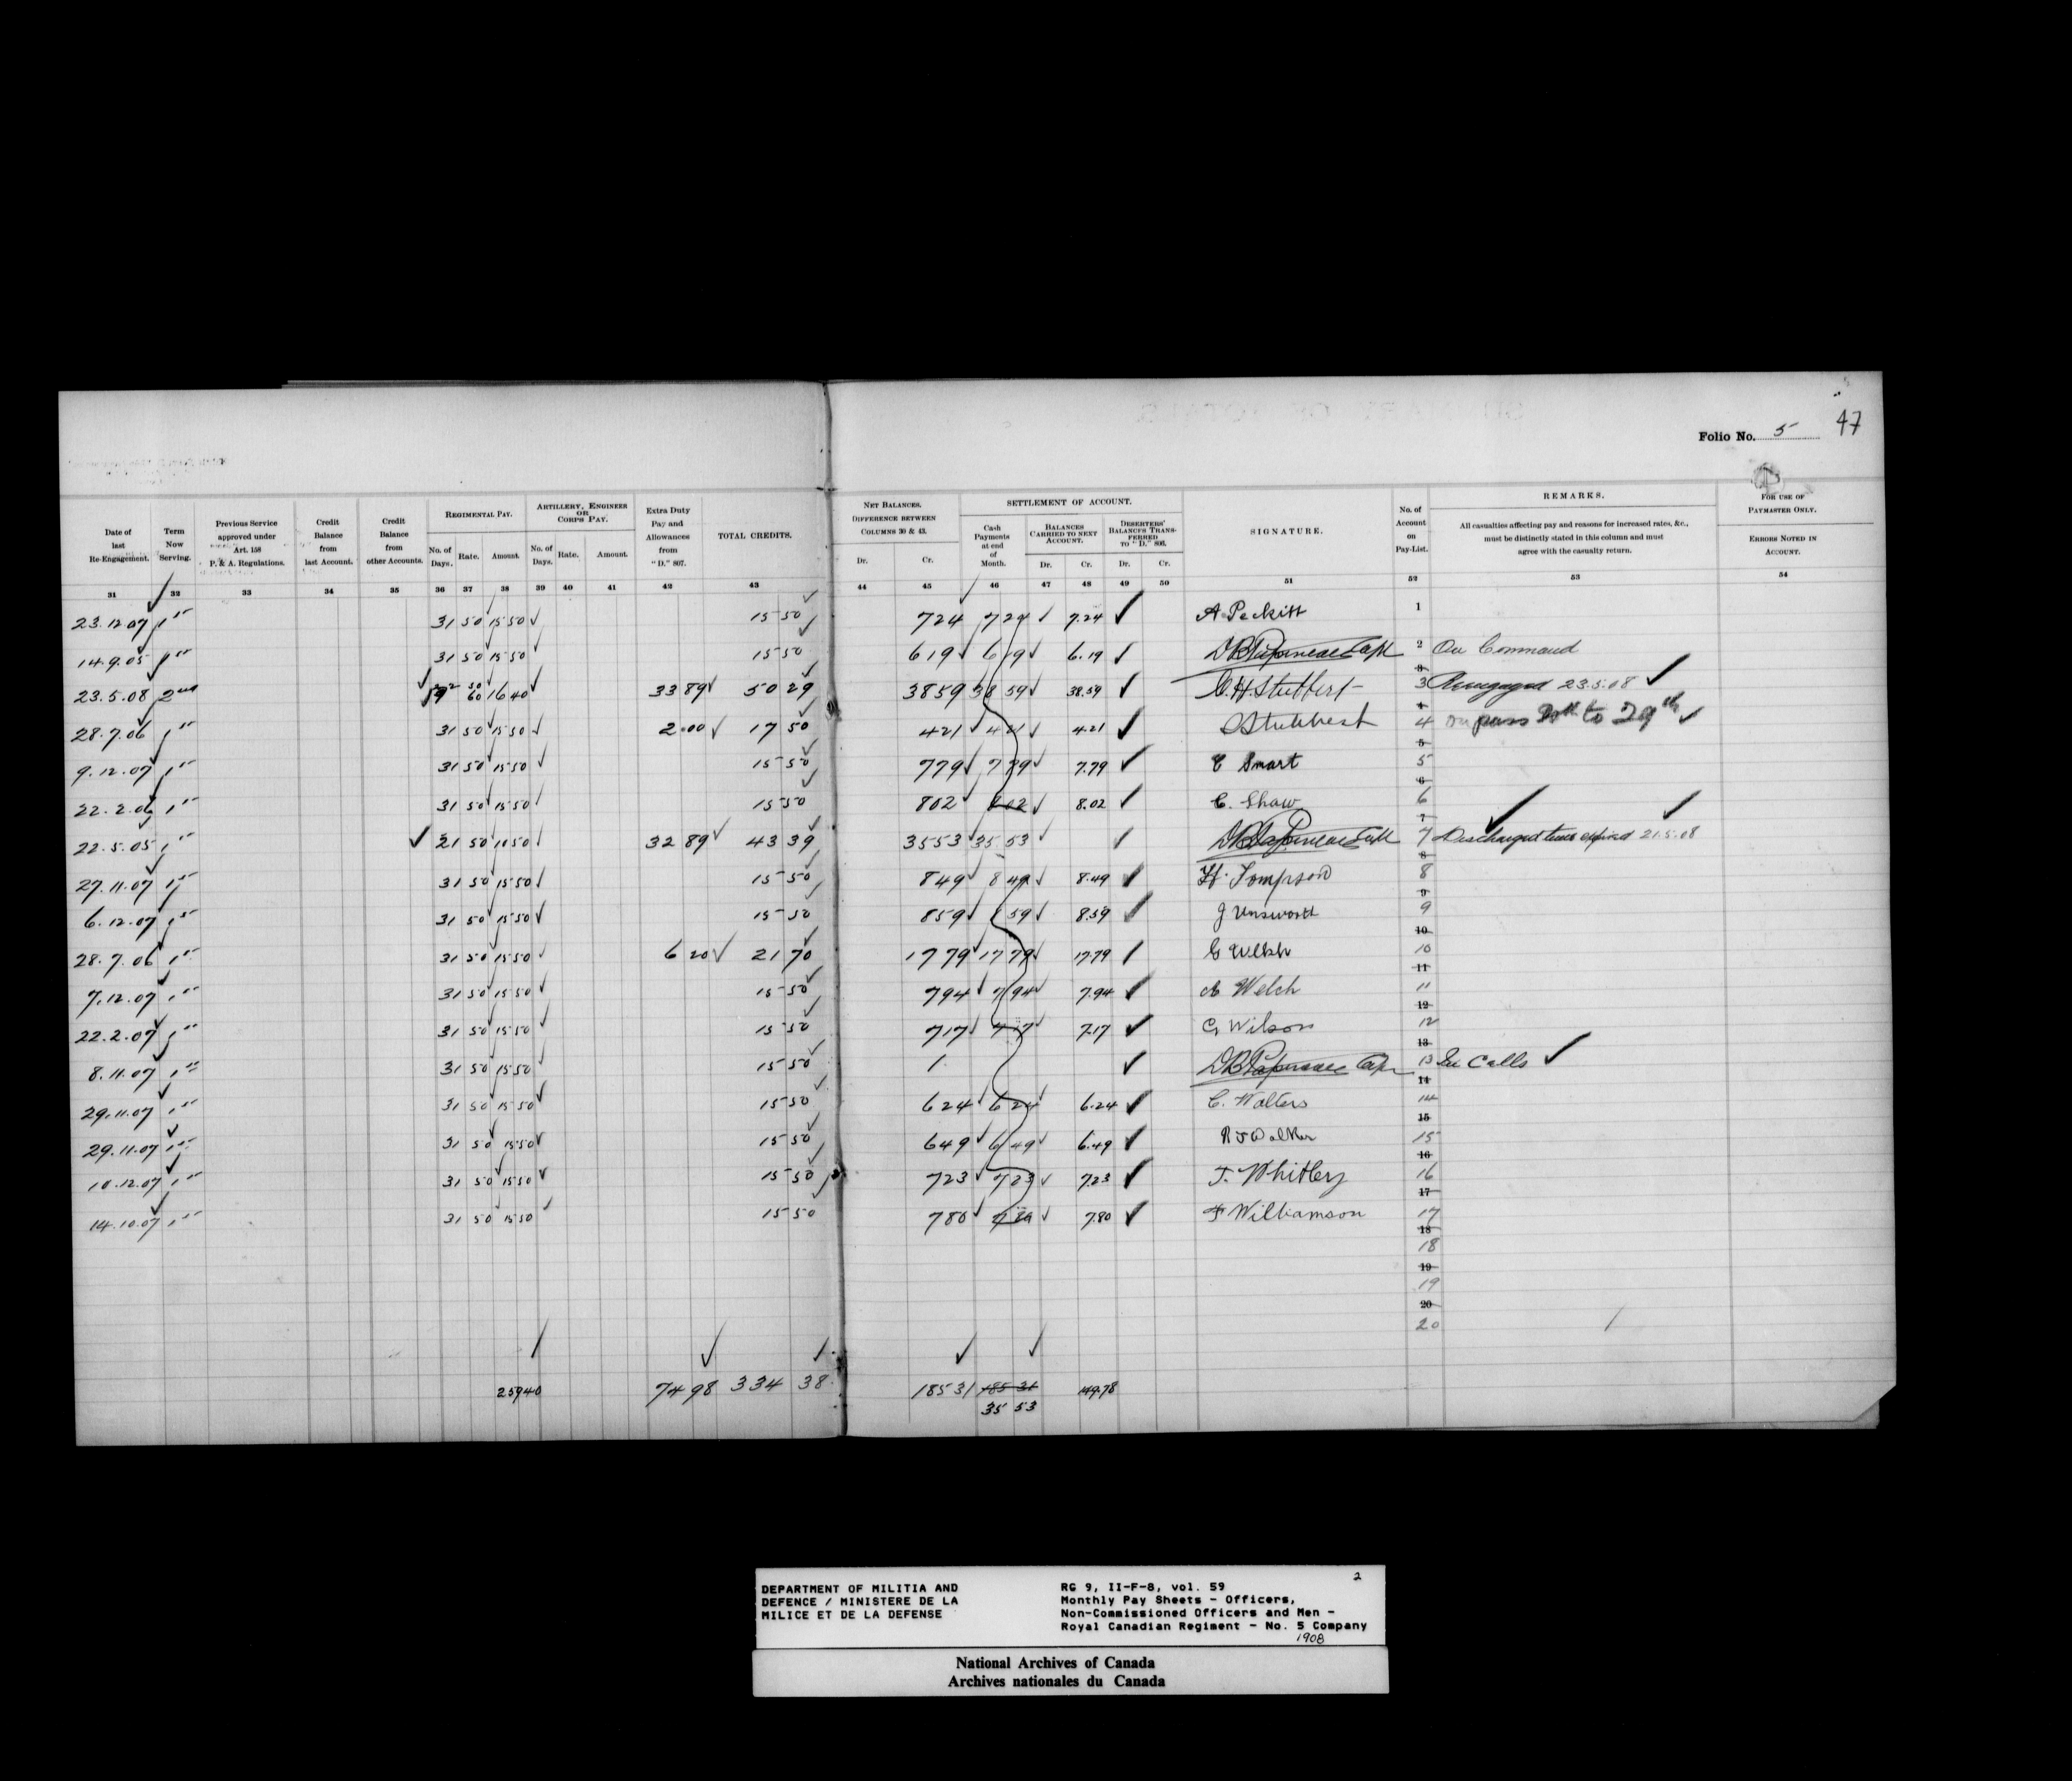 47
Folio No. 5
Date of last Re-Engagement.
Term Now Serving.
Previous Service approved under Art. 158 P. & A. Regulations.
Credit Balance from last Account.
Credit Balance from other Accounts.
REGIMENTAL PAY.
No. of Days.
Rate.
Amount.
ARTILLERY, ENGINEER OR CORPS PAY.
No. of Days.
Rate.
Amount.
Extra Duty Pay and Allowances from "D." 807.
TOTAL CREDITS.
NET BALANCES.
DIFFERENCE BETWEEN COLUMNS 30 & 43.
Dr.
Cr.
SETTLEMENT OF ACCOUNT.
Cash Payments at end of Month.
BALANCES CARRIED TO NEXT ACCOUNT.
Dr.
Cr.
DESERTERS' BALANCES TRANSFERRED TO "D." 808.
Dr.
Cr.
SIGNATURE.
No. of Account on Pay-List.
REMARKS.
All casualties affecting pay and reasons for increased rates, &c., must be distinctly stated in this column and must agree with the casualty return.
FOR USE OF PAYMASTER ONLY.
ERRORS NOTED IN ACCOUNT.
31 32 33 34 35 36 37 38 39 40 41 42 43 44 45 46 47 48 49 50 51 52 53 54
23.12.07 1st 31 50 15 50 15 50 7 24 7 24 7.24 A. Peckitt 1
14.9.05 1st 31 50 15 50 15 50 6 19 6 19 6.19 2 On Command
23.5.08 2nd 50 60 16 40 33 89 50 29 38 59 38 59 38.59 3 Reengaged 23.5.08
28.7.06 1st 31 50 15 50 2.00 17 50 4 21 4 21 4.21 4 on pass to 29th
9.12.07 1st 31 50 15 50 15 50 7 79 7 79 7.79 E Smart 5
22.2.06 1st 31 50 15 50 15 50 8 02 8 02 8.02 C. Shaw 6
22.5.05 1st 21 50 10 50 32 89 43 39 35 53 35 53 7 Discharged time expired 21.5.08
27.11.07 1st 31 50 15 50 15 50 8 49 8 49 8.49 H. Tompson 8
6.12.07 1st 31 50 15 50 15 50 8 59 59 8.59 J Unsworth 9
28.7.06 1st 31 50 15 50 6 20 21 70 17 79 17 79 17.79 G Welsh 10
7.12.07 1st 31 50 15 50 15 50 7 94 7 94 7.94 A Welch 11
22.2.07 1st 31 50 15 50 15 50 7 17 7 17 7.17 G Wilson 12
8.11.07 1st 31 50 15 50 15 50 1. 13 In Cells
29.11.07 1st 31 50 15 50 15 50 6 24 6 24 6.24 C. Walters 14
29.11.07 1st 31 50 15 50 15 50 6 49 6 49 6.49 R J Walker 15
10.12.07 1st 31 50 15 50 15 50 7 23 7 23 7.23 J. Whitley 16
14.10.07 1st 31 50 15 50 15 50 7 80 7 80 7.80 F Williamson 17
18
19
20
259 40 74 98 334 38 185 31 185 31 149.78
35 53
DEPARTMENT OF MILITIA AND
DEFENCE / MINISTERE DE LA
MILICE ET DE LA DEFENSE
2
RG 9, II-F-8, vol. 59
Monthly Pay Sheets - Officers,
Non-Commissioned Officers and Men -
Royal Canadian Regiment - No. 5 Company
1908
National Archives of Canada
Archives nationales du Canada